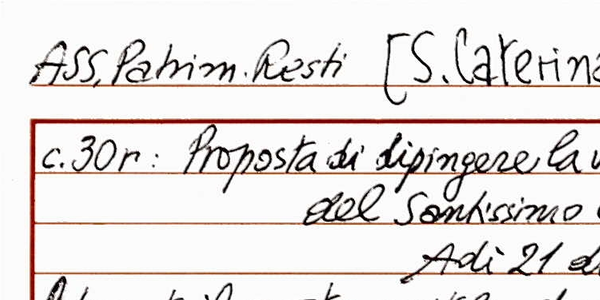 ASS, Patrim. Resti [S. Caterina
c. 30r: Proposta di dipingere la v
del Santissimo
Adì 21 di